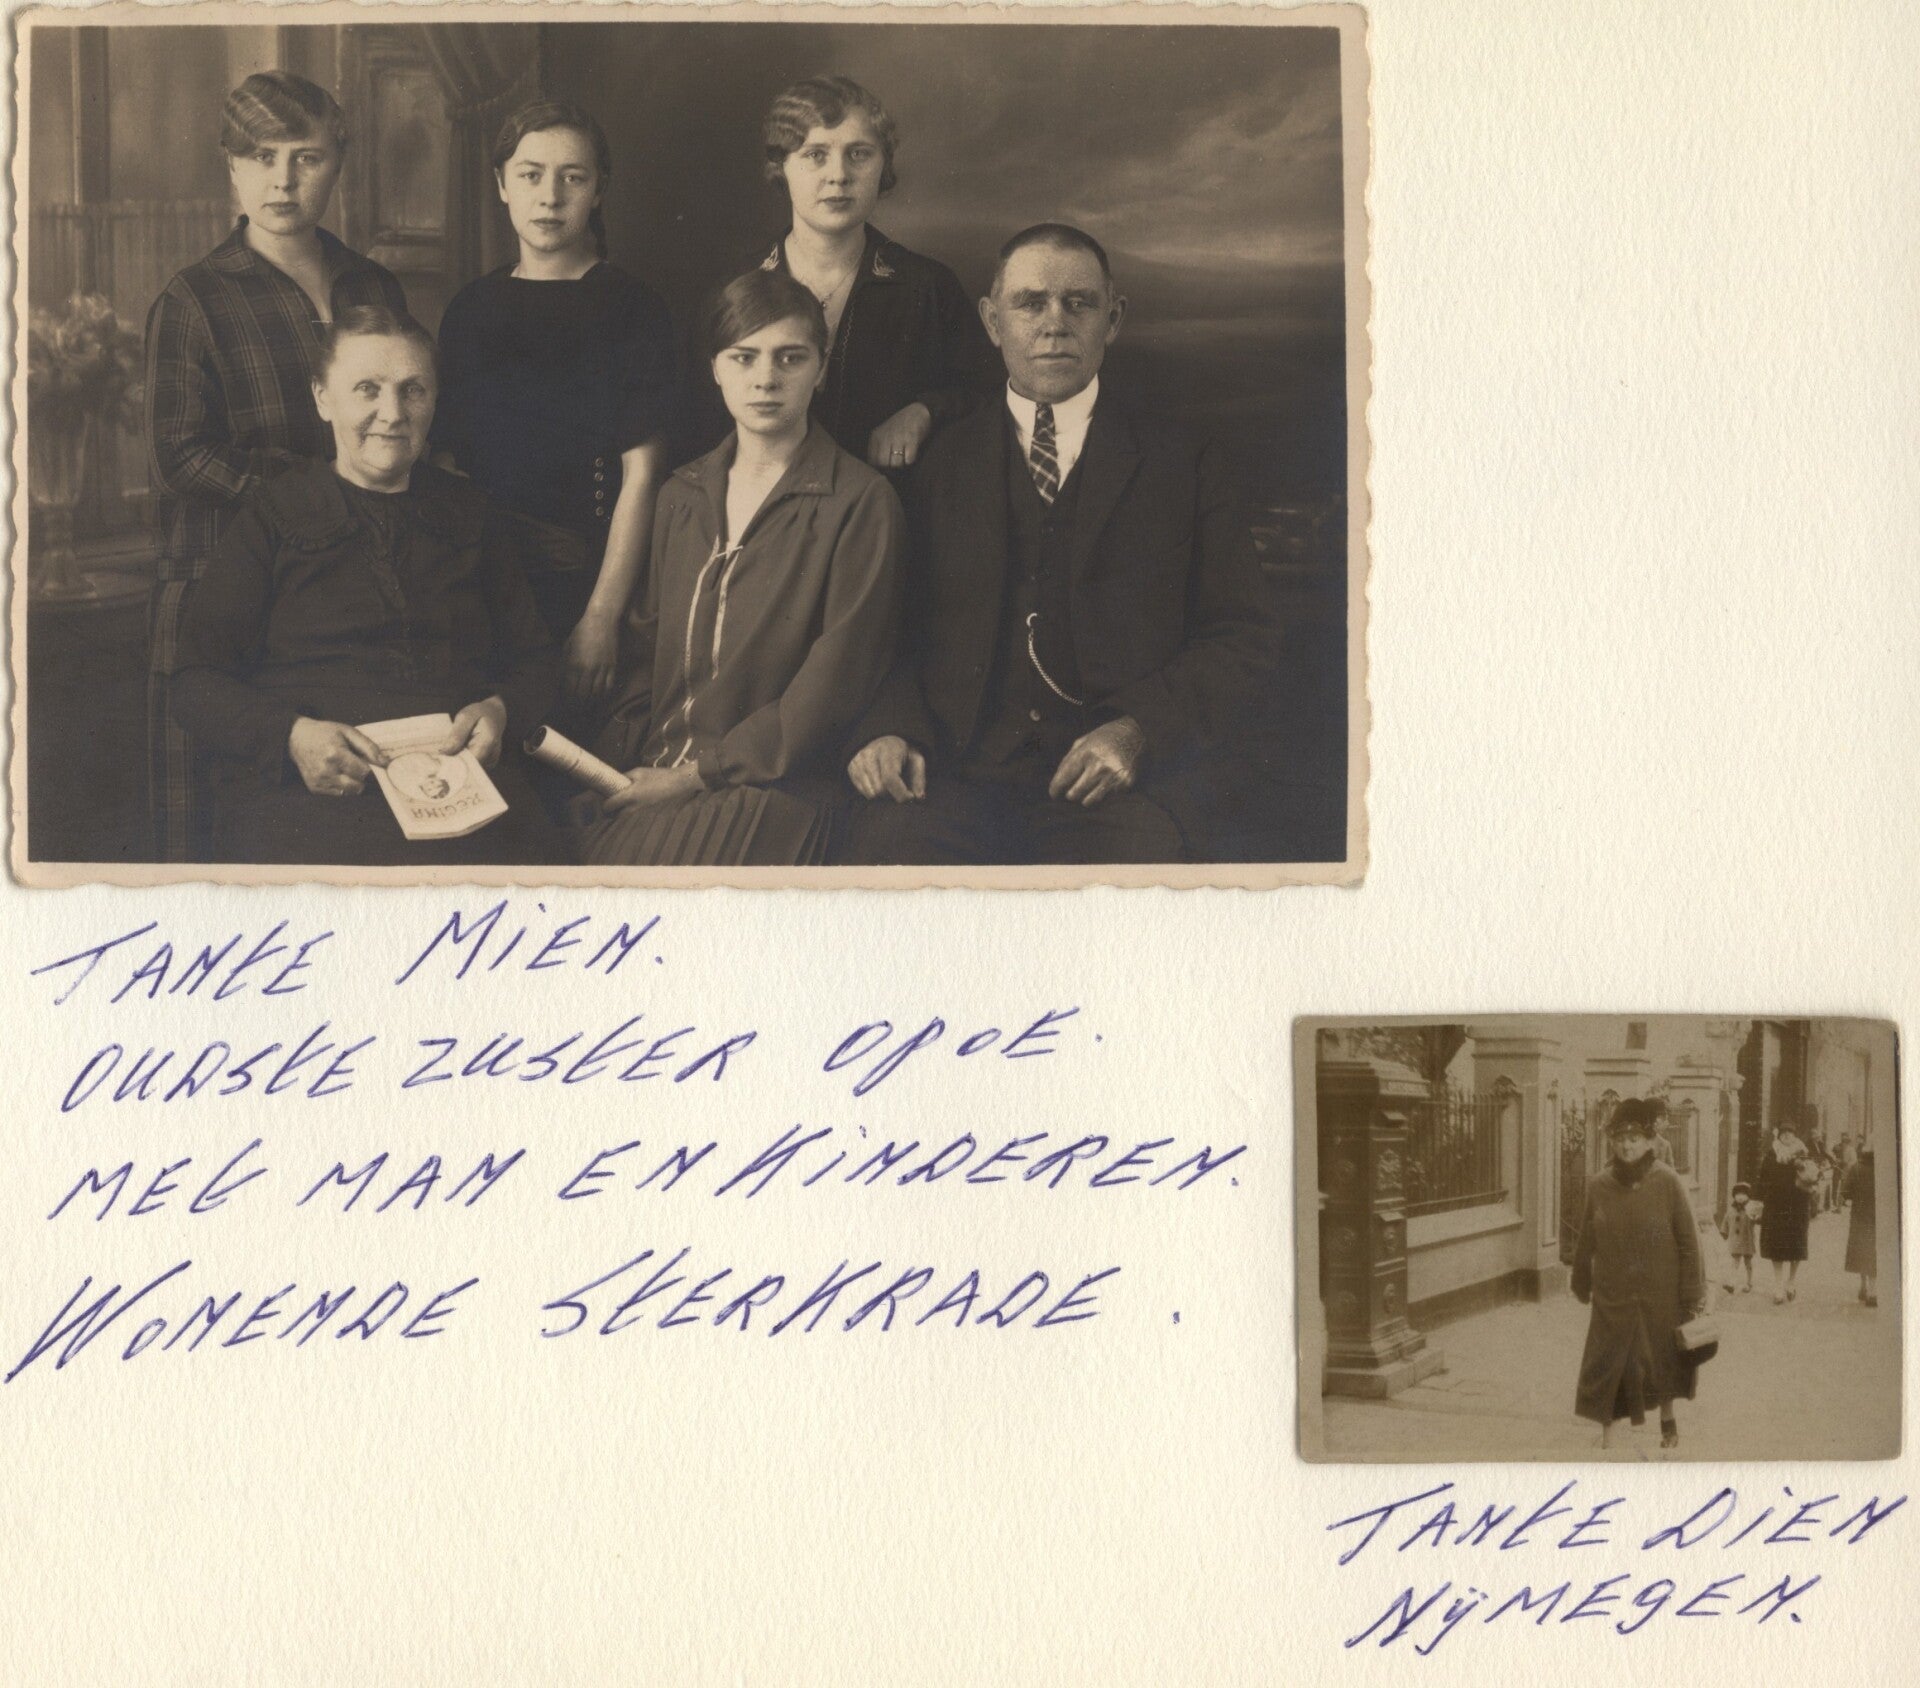 REGINA
TANTE MIEN.
OUDSTE ZUSTER OPOE.
MET MAN EN KINDEREN.
WONENDE STERKRADE.
TANTE DIEN
NIJMEGEN.